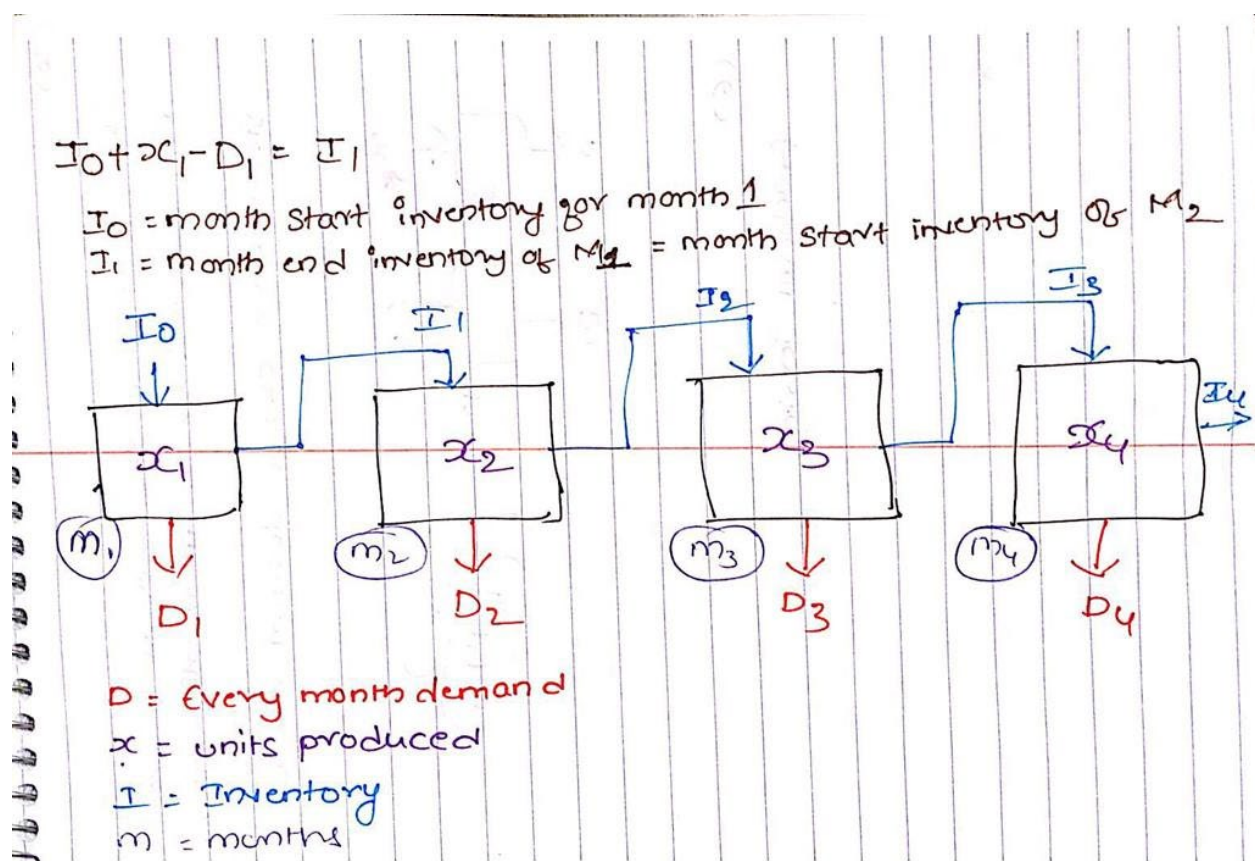 I0+x1-D1 = I1
I0 = month start inventory for month 1
I1 = month end inventory of M1 = month start inventory of M2
I0 I1 I2 I3
x1 x2 x3 x4 I4
m1 m2 m3 m4
D1 D2 D3 D4
D = Every month demand
x = units produced
I = Inventory
m = months